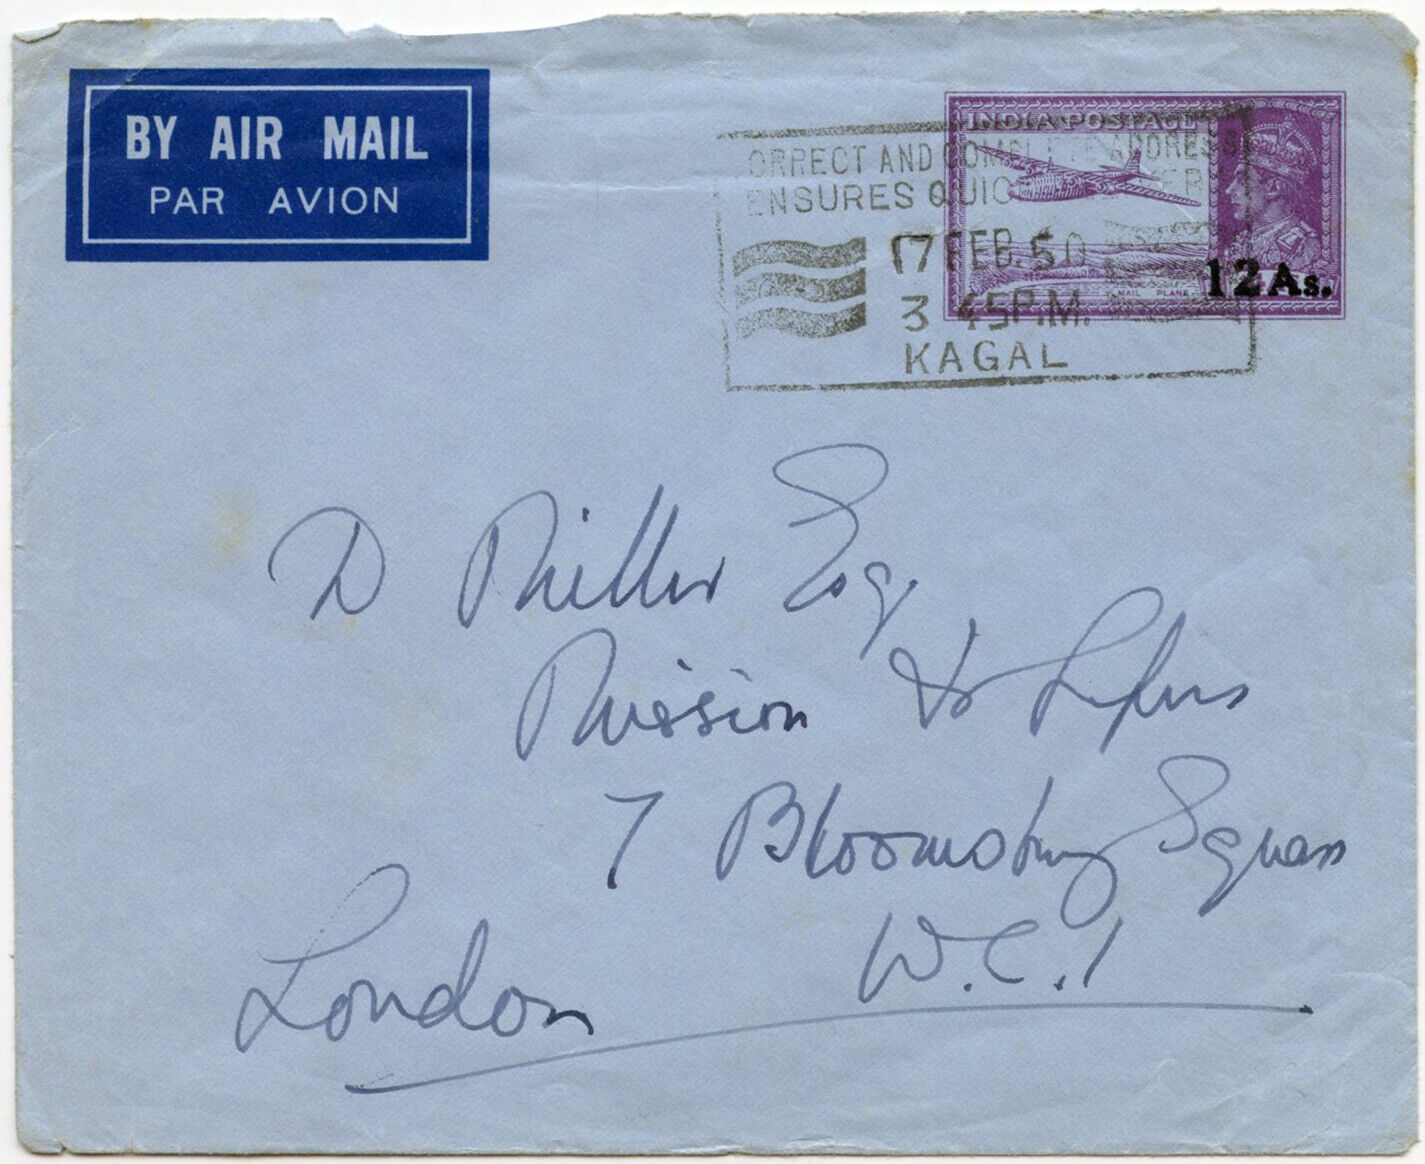 BY AIR MAIL
PAR AVION
INDIA POSTAGE
ORRECT AND COMPLETE ADDRESS
ENSURES QUIC VER
17 FEB. 50
3 45 P.M.
KAGAL
MAIL PLANE
12 As.
D Miller Esq,
Mission to Lepers
7 Bloomsbury Square
W.C.1
London